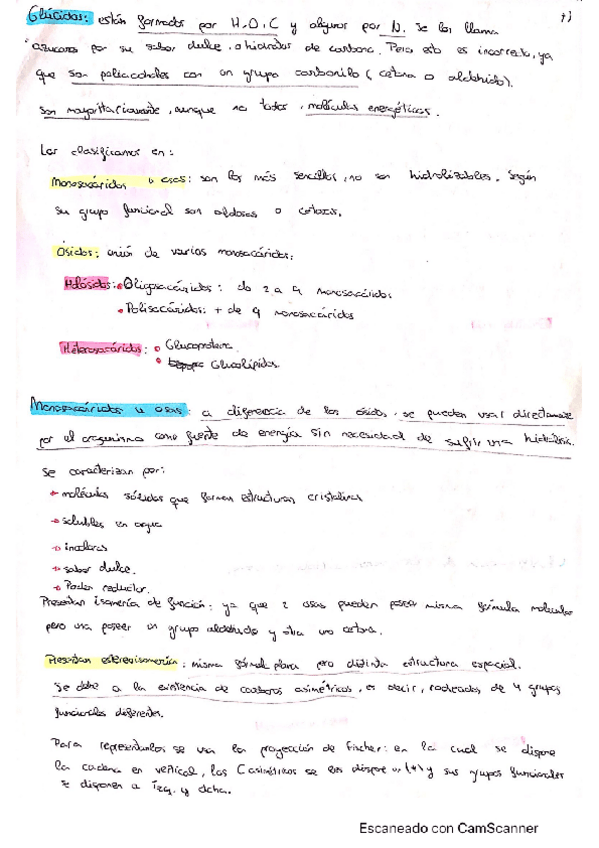 Glúcidos: están formados por H, O, C y algunos por N. Se los llama
azucares por su sabor dulce, o hidratos de carbono. Pero esto es incorrecto, ya
que son polialcoholes con un grupo carbonilo (cetona o aldehído).
Son mayoritariamente, aunque no todos, moléculas energéticas.
Los clasificamos en:
Monosacáridos u osas: son los más sencillos, no son hidrolizables. Según
su grupo funcional son aldosas o cetosas.
Ósidos: unión de varios monosacáridos:
Holósidos: Oligosacáridos: de 2 a 9 monosacáridos
Polisacáridos: + de 9 monosacáridos
Heterosacáridos: Glucoproteína
Glucolípidos.
Monosacáridos u osas: a diferencia de los ósidos, se pueden usar directamente
por el organismo como fuente de energía sin necesidad de sufrir una hidrólisis.
Se caracterizan por:
moléculas sólidas que forman estructuras cristalinas
solubles en agua
incoloras
sabor dulce.
Poder reductor.
Presentan isomería de función: ya que 2 osas pueden poseer misma fórmula molecular
pero una poseer un grupo aldehído y otra uno cetona.
Presentan estereoisomería: misma fórmula plana pero distinta estructura espacial.
Se debe a la existencia de carbonos asimétricos, es decir, rodeados de 4 grupos
funcionales diferentes.
Para representarlos se usa la proyección de Fischer: en la cual se dispone
la cadena en vertical, los C asimétricos se dispone (+) y sus grupos funcionales
se disponen a izq. y dcha.
Escaneado con CamScanner